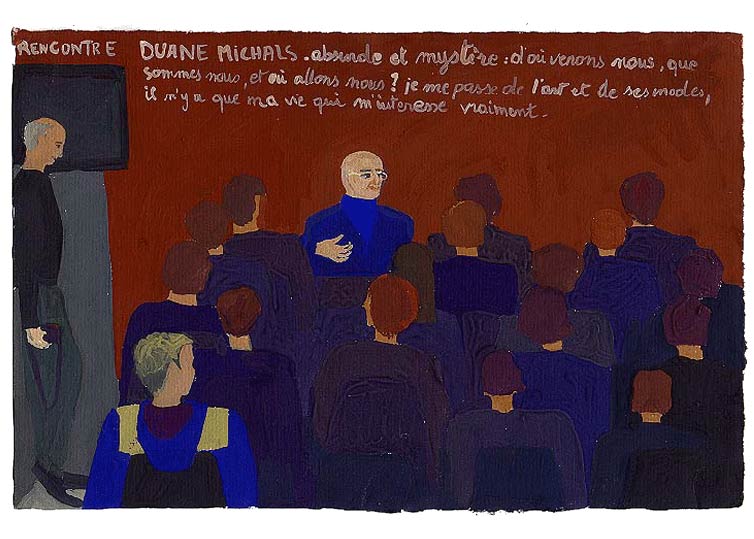 RENCONTRE DUANE MICHALS. absurde et mystère : d'où venons nous, que
sommes nous, et où allons nous ? je me passe de l'art et de ses modes,
il n'y a que ma vie qui m'interesse vraiment.